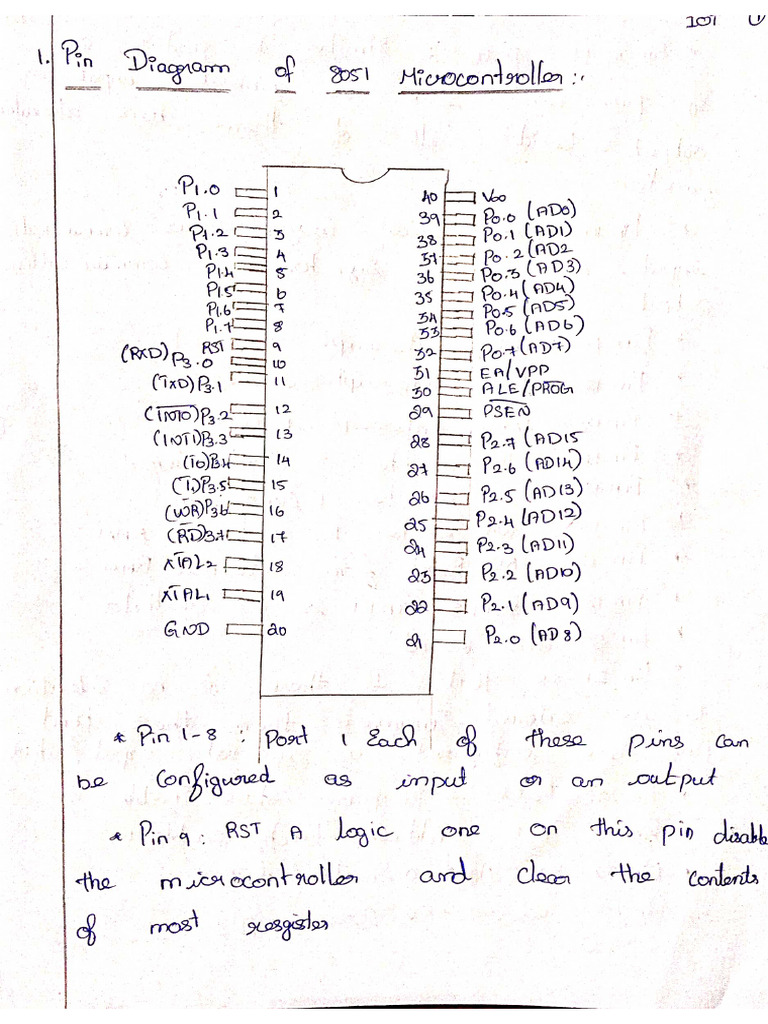 101 ①
1. Pin Diagram of 8051 Microcontroller:.
P1.0 1 40 VDD
P1.1 2 39 P0.0 (AD0)
P1.2 3 38 P0.1 (AD1)
P1.3 4 37 P0.2 (AD2
P1.4 5 36 P0.3 (AD3)
P1.5 6 35 P0.4 (AD4)
P1.6 7 34 P0.5 (AD5)
P1.7 8 33 P0.6 (AD6)
RST 9 32 P0.7 (AD7)
(RXD) P3.0 10 31 EA/VPP
(TXD) P3.1 11 30 ALE/PROG
(INT0) P3.2 12 29 PSEN
(INT1) P3.3 13 28 P2.7 (AD15
(T0) P3.4 14 27 P2.6 (AD14)
(T1) P3.5 15 26 P2.5 (AD13)
(WR) P3.6 16 25 P2.4 (AD12)
(RD) 3.7 17 24 P2.3 (AD11)
XTAL2 18 23 P2.2 (AD10)
XTAL1 19 22 P2.1 (AD9)
GND 20 21 P2.0 (AD8)
* Pin 1-8 : Port 1 Each of these pins can
be configured as input or an output
* Pin 9 : RST A logic one on this pin disable
the microcontroller and clear the contents
of most resgister